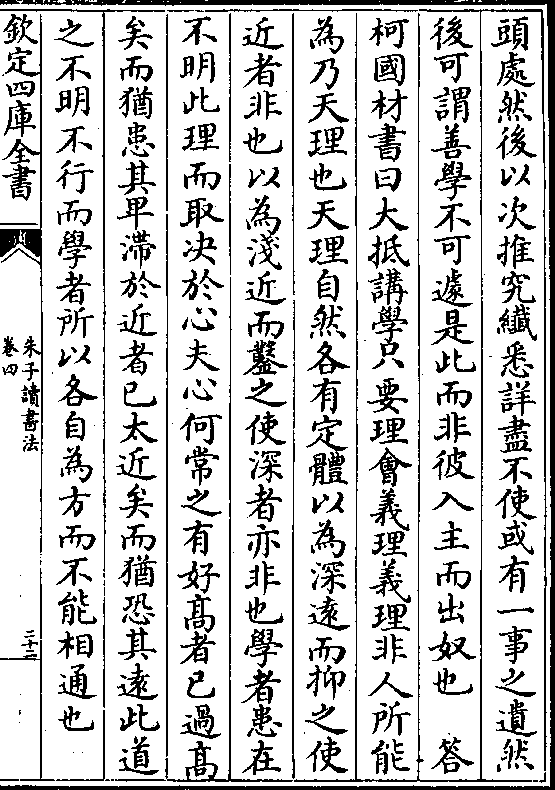 頭處然後以次推究纖悉詳盡不使或有一事之遺然
後可謂善學不可遽是此而非彼入主而出奴也　答
柯國材書曰大抵講學只要理會義理義理非人所能
為乃天理也天理自然各有定體以為深遠而抑之使
近者非也以為淺近而鑿之使深者亦非也學者患在
不明此理而取决於心夫心何常之有好髙者已過髙
矣而猶患其卑滯於近者已太近矣而猶恐其遠此道
之不明不行而學者所以各自為方而不能相通也
欽定四庫全書
朱子讀書法
卷四
三十二